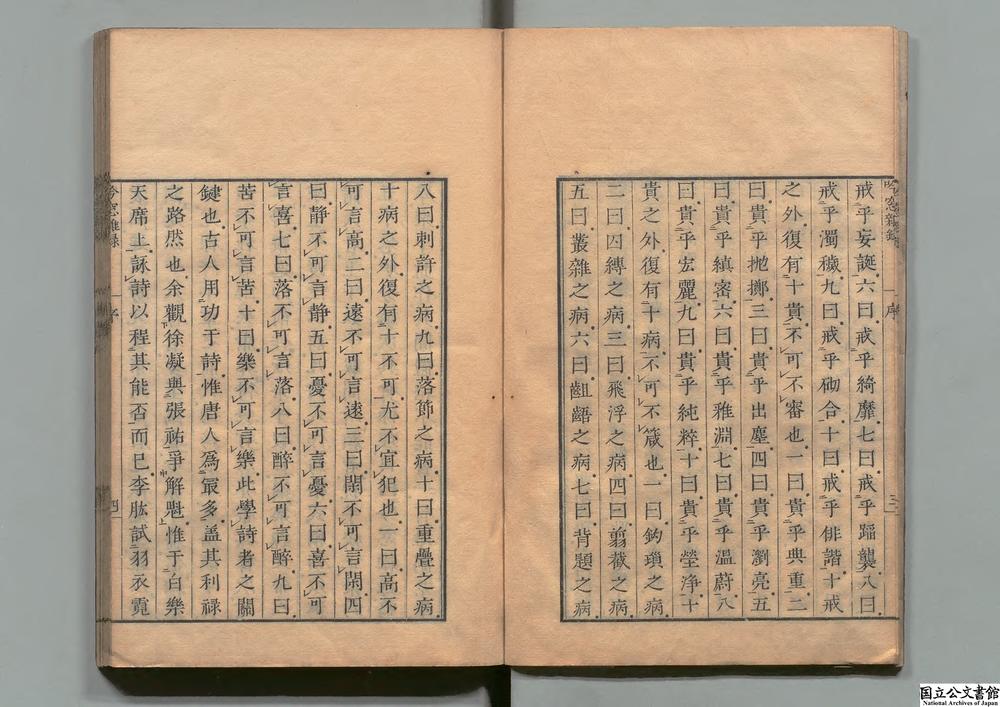 戒乎妄誕六曰戒乎綺靡七曰戒乎蹈襲八曰
戒乎濁穢九曰戒乎砌合十曰戒乎俳諧十戒
之外復有十貴不可不審也一曰貴乎典重二
曰貴乎抛擲三曰貴乎出塵四曰貴乎瀏亮五
曰貴乎縝密六曰貴乎雅淵七曰貴乎溫蔚八
曰貴乎宏麗九曰貴乎純粹十曰貴乎瑩淨十
貴之外復有十病不可不箴也一曰鉤瑣之病
二曰四縛之病三曰飛浮之病四曰翦截之病
五曰叢雜之病六曰齟齬之病七曰背題之病
八曰刺訐之病九曰落節之病十曰重疊之病
十病之外復有十不可尤不宜犯也一曰高不
可言高二曰遠不可言遠三曰閑不可言閑四
曰靜不可言靜五曰憂不可言憂六曰喜不可
言喜七曰落不可言落八曰醉不可言醉九曰
苦不可言苦十曰樂不可言樂此學詩者之關
鍵也古人用功于詩惟唐人爲最多盖其利祿
之路然也余觀徐凝與張祐爭解魁惟于白樂
天席上詠詩以程其能否而已李肱試羽衣霓
吟窓雜録
序
三
序
四
国立公文書館
National Archives of Japan